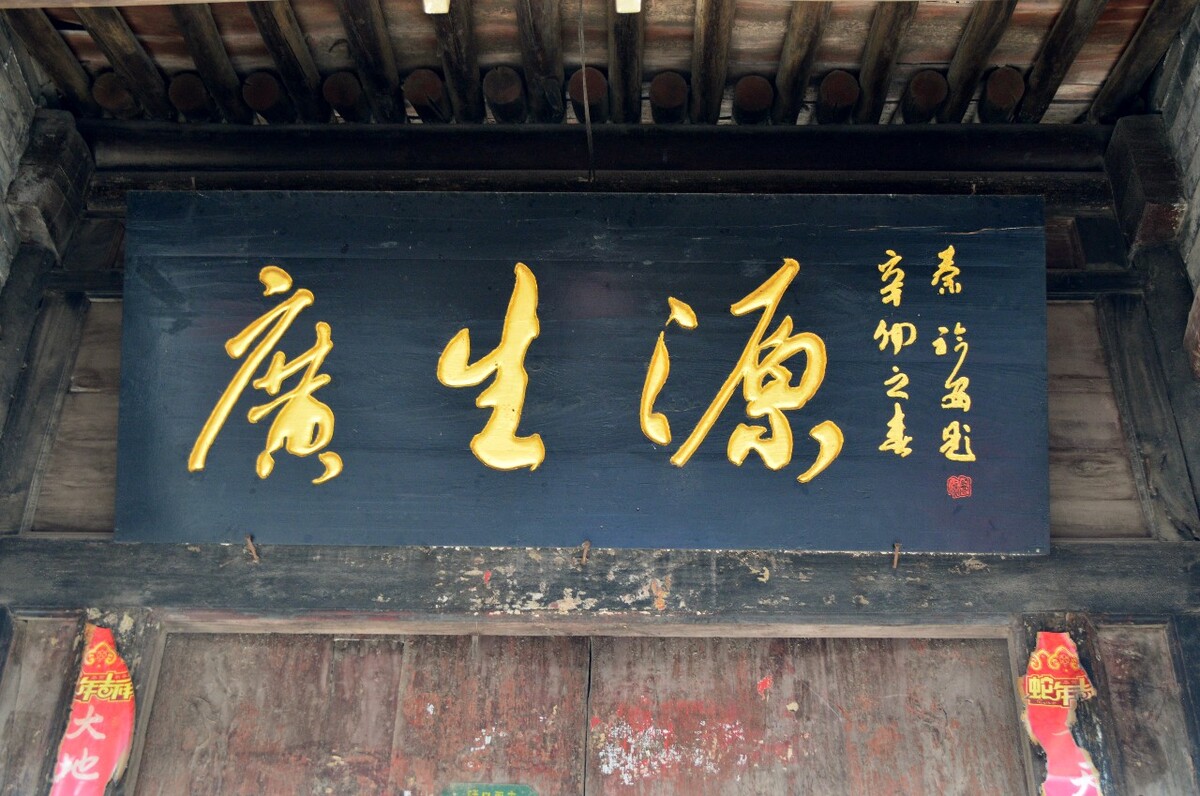 廣生源
辛卯之春
秦
年吉祥
大地
蛇年吉